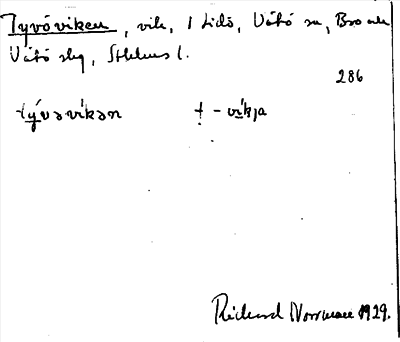 Tyvöviken, vik, i Lidö, Vätö sn, Bro och
Vätö skg, Sthlms l.
286
tývəvikən ṭ -víkja
Richard Norrman 1929.